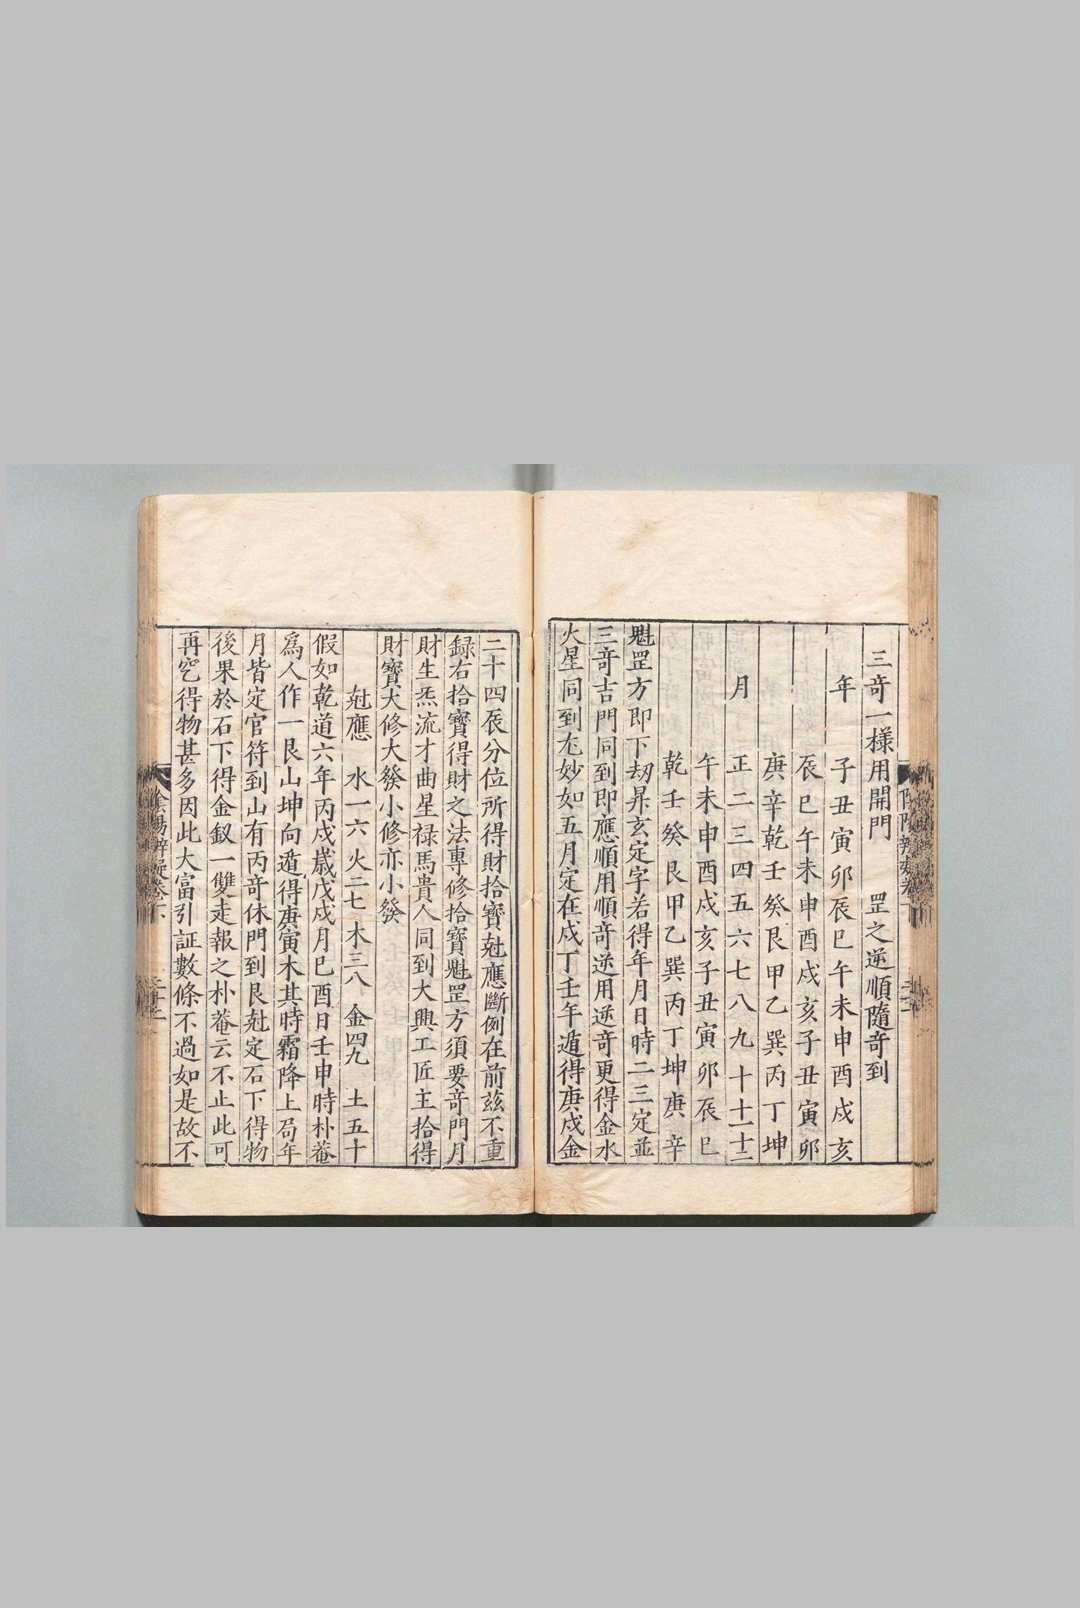 三竒一様用開門　罡之逆順隨竒到
年　子丑寅卯辰巳午未申酉戌亥
辰巳午未申酉戌亥子丑寅卯
庚辛乾壬癸艮甲乙巽丙丁坤
月　正二三四五六七八九十十一十二
午未申酉戌亥子丑寅卯辰巳
乾壬癸艮甲乙巽丙丁坤庚辛
魁罡方即下刼昇玄定字若得年月日時二三定並
三竒吉門同到即應順用順竒逆用逆竒更得金水
火星同到尤妙如五月定在戌丁壬年遁得庚戌金
二十四辰分位所得財拾寳尅應斷例在前兹不重
録右拾寳得財之法專修拾寳魁罡方須要竒門月
財生炁流才曲星禄馬貴人同到大興工匠主拾得
財寳大修大發小修亦小發
尅應　水一六　火二七　木三八　金四九　土五十
假如乾道六年丙戌歲戊戌月巳酉日壬申時朴菴
爲人作一艮山坤向遁得庚寅木其時霜降上局年
月皆定官符到山有丙竒休門到艮尅定石下得物
後果於石下得金釵一雙走報之朴菴云不止此可
再穵得物甚多因此大富引証數條不過如是故不
陰陽辨疑卷下